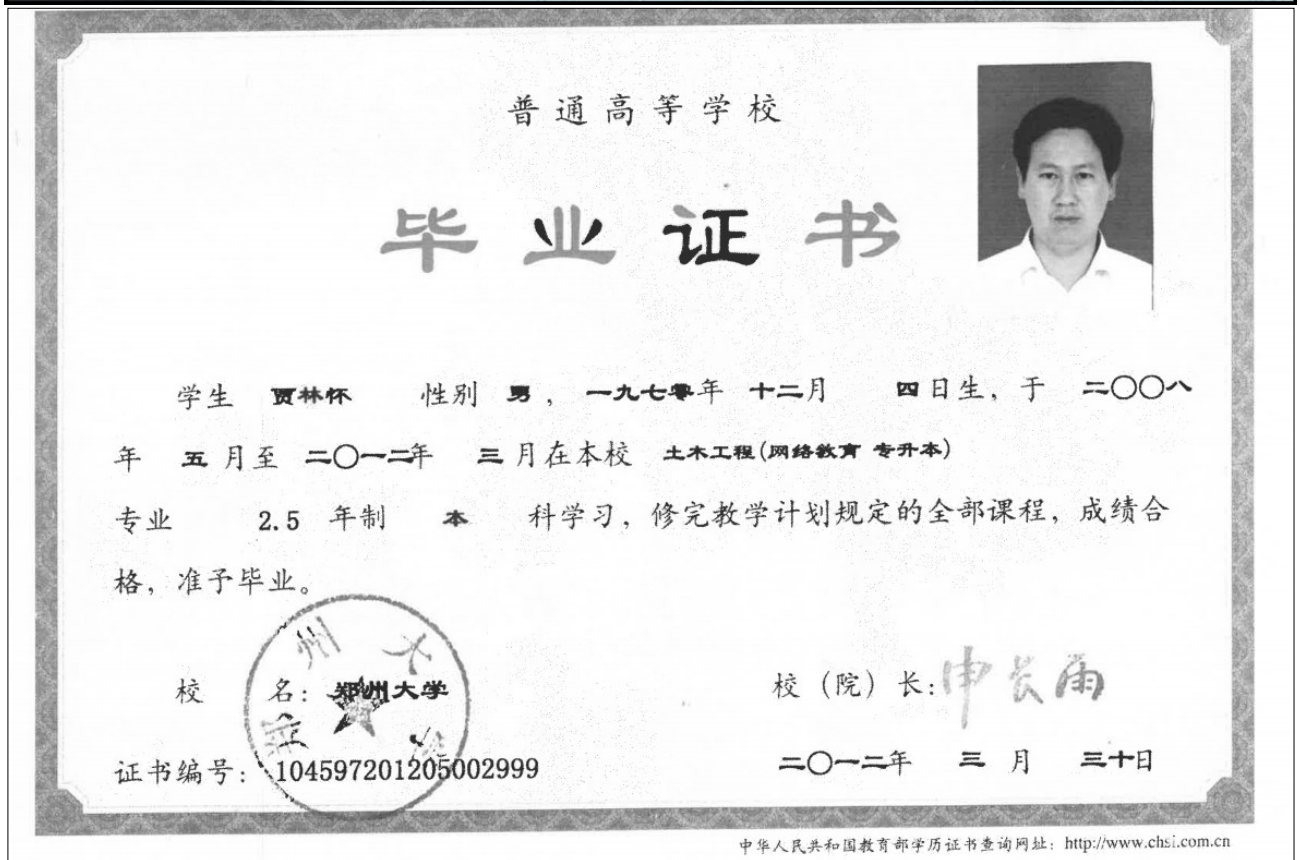 普通高等学校
毕业证书
学生 贾林怀 性别 男, 一九七零年 十二月 四日生, 于 二〇〇八
年 五月至 二〇一二年 三月在本校 土木工程(网络教育 专升本)
专业 2.5 年制 本 科学习, 修完教学计划规定的全部课程, 成绩合
格, 准予毕业。
郑州大学
校 名: 郑州大学
校(院)长: 申长雨
证书编号: 104597201205002999
二〇一二年 三月 三十日
中华人民共和国教育部学历证书查询网址: http://www.chsi.com.cn